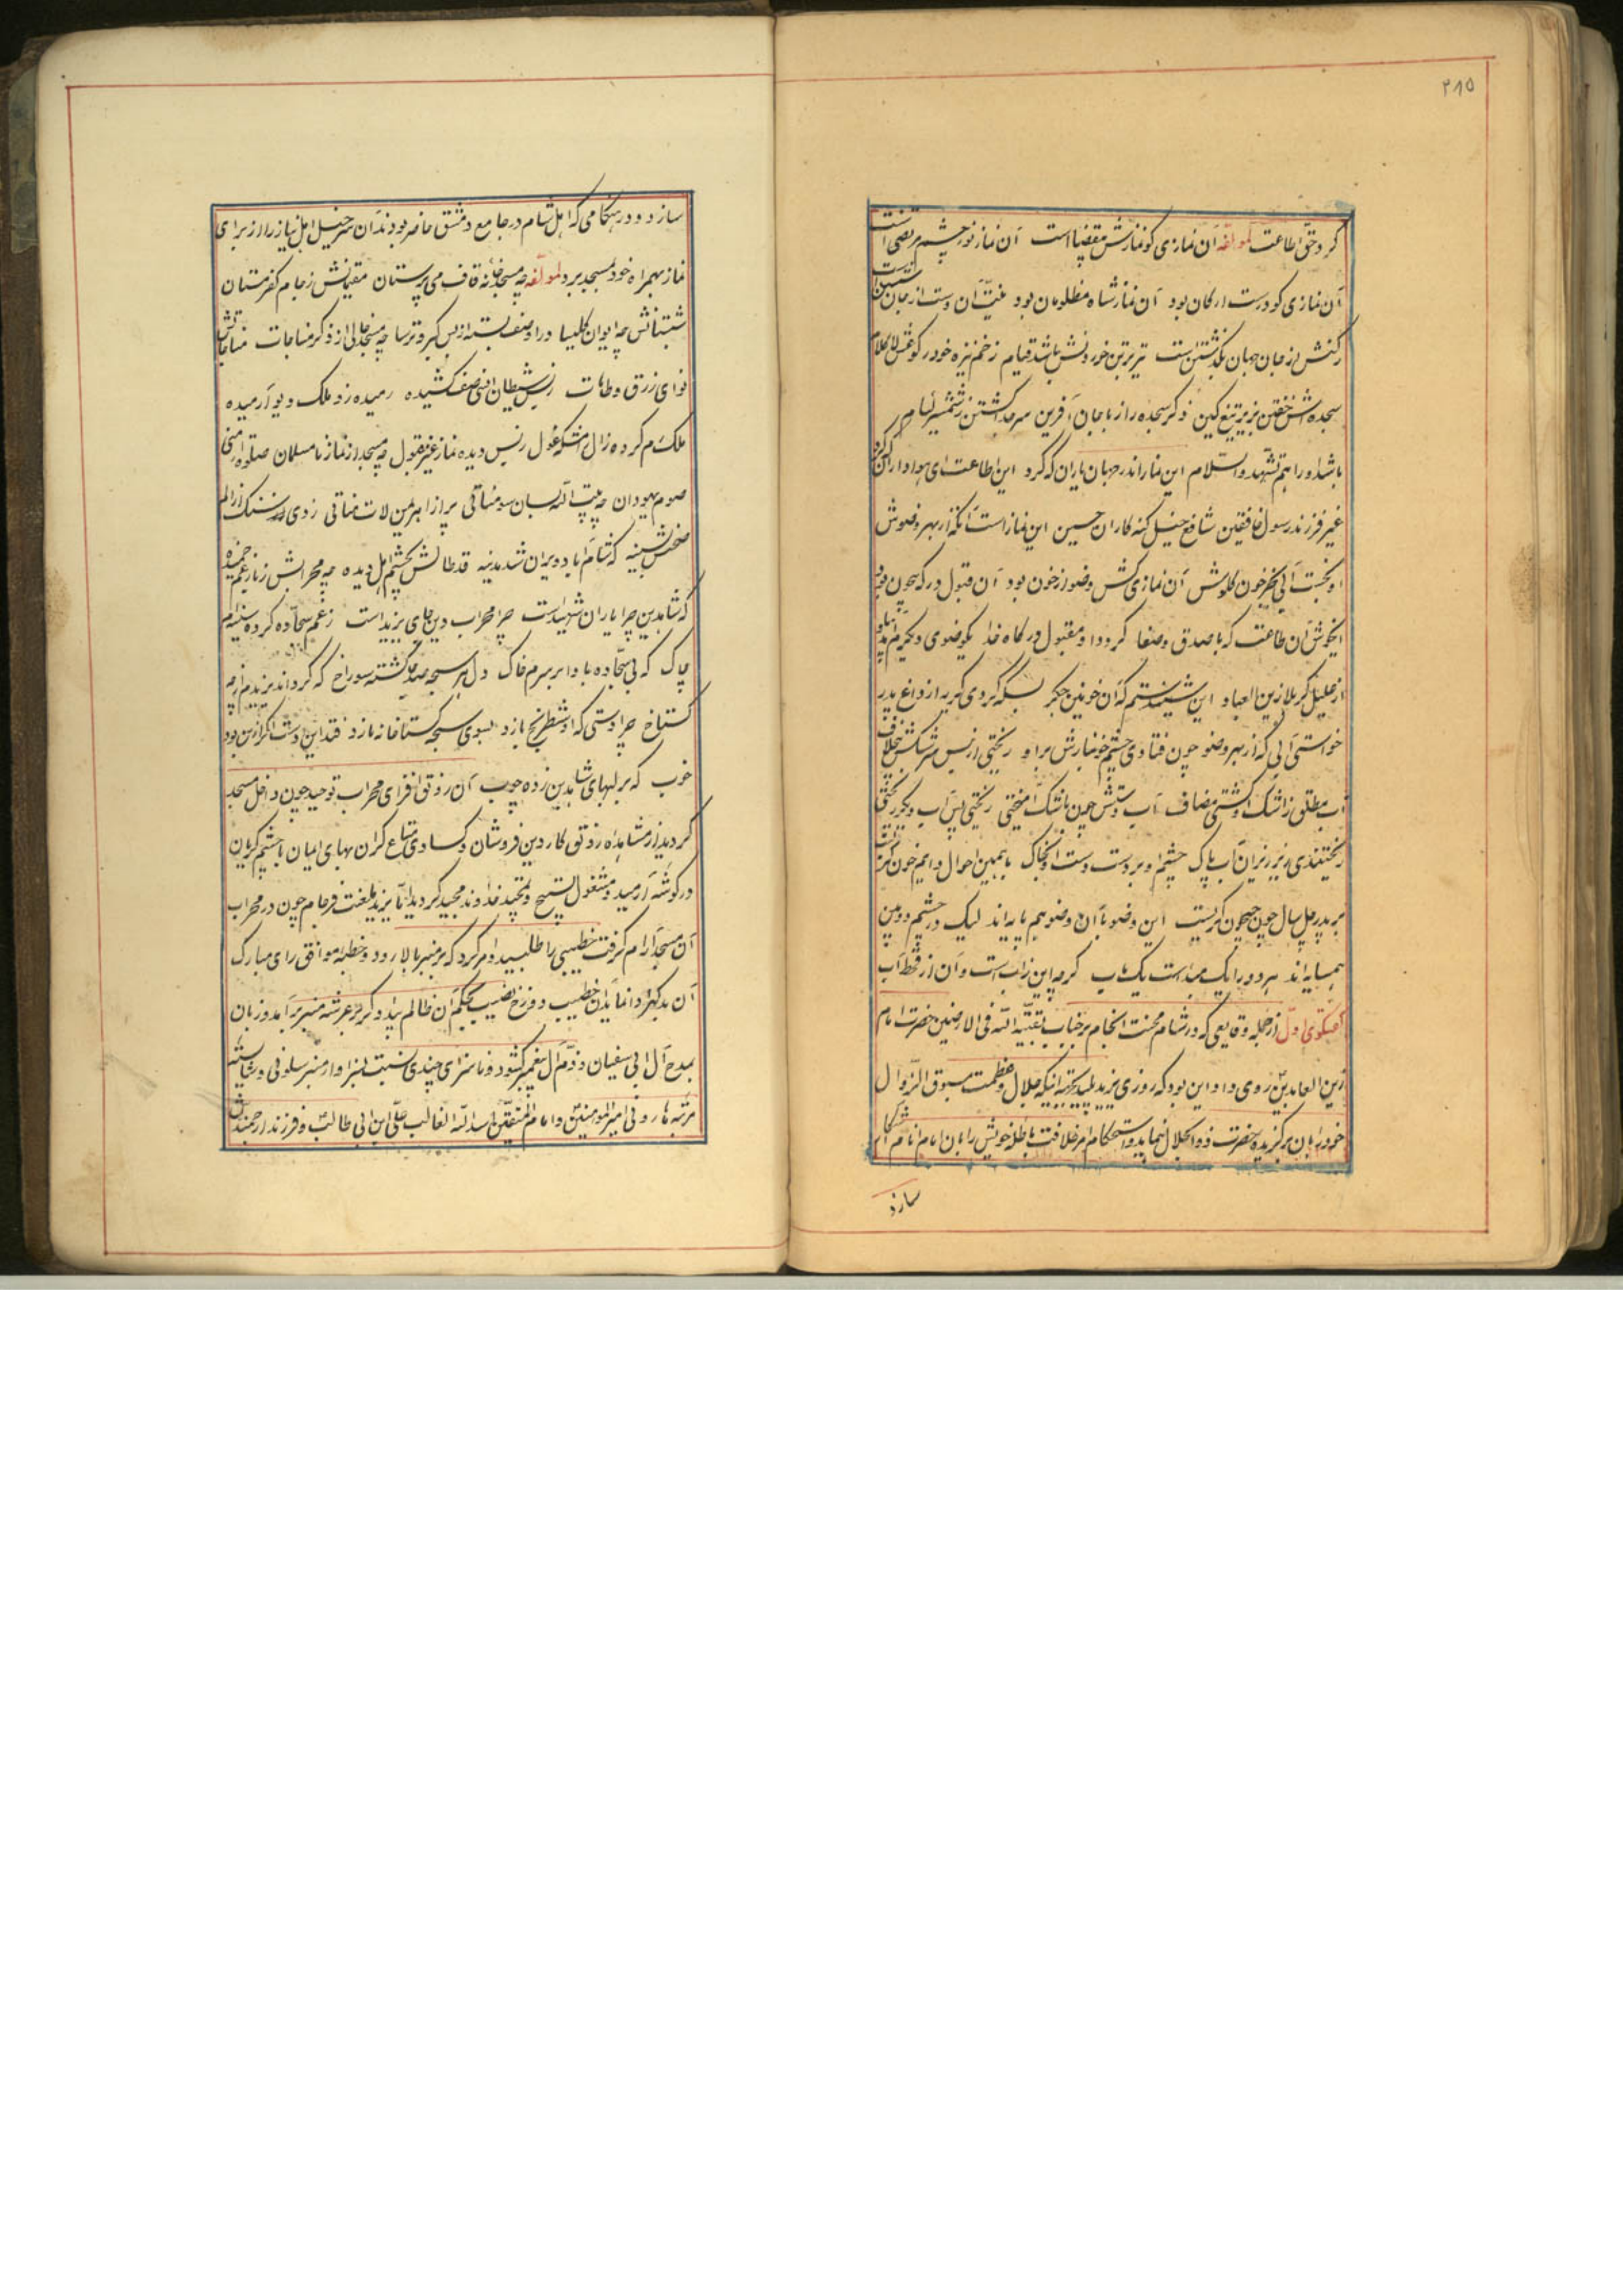 ۲۸۵
کرد حق اطاعت لمؤلفه آن نمازی کو نمازش مقتضا است آن نماز نور چشم مرتضی است
آن نمازی کو درست ارکان بود آن نماز شاه مظلومان بود نیت آن دست از جان شستن است
رکنش از جان جهان بگذشتن است تیر بر تن خوردنش باشد قیام زخم نیزه خوردن
سجده‌اش خفتن بزیر تیغ کین ذکر سجده راز با جان آفرین سر جدا گشتن ز شمشیر لئام
باشد او را هم تشهد والسلام این نماز اندر جهان یاران که کرد این اطاعت ای هوادارن که کرد
غیر فرزند رسول خافقین شافع خیل گنه کاران حسین این نماز است آنکه از بهر وضوش
او نجست آبی بجز خون گلوش آن نمازی کش وضو از خون بود آن قبول درگه بیچون بود
ایخوش آن طاعت که با صدق و صفا کرد و او مقبول درگاه خدا یکوضوی دیگرم آمد بیاد
از علیل کربلا زین العباد این شنیدستم که آن خونین جگر بسکه کردی گریه از داغ پدر
خواستی آبی که از بهر وضو چون فتادی چشم خونبارش براو ریختی از بس سرشکش
آب مطلق ز اشک او گشتی مضاف آب دستش چون باشک آمیختی ریختی پس آب و دیگر ریختی
ریختندی نیز زین آب پاک چشم او بر دست و دست او بخاک با همین احوال دایم خون گریست
بر پدر چل سال چون جیحون گریست این وضو با آن وضو هم پایه‌اند لیک در چشم دو بین
همسایه‌اند هر دو را یک مبدا است یک مآب گرچه این ز آب است و آن از قحط آب
گفتگوی اول از جمله وقایعی که در شام محنت انجام بر جناب بقیة الله فی الارضین حضرت امام
زین العابدین روی داد این بود که روزی یزید پلید بجهة اینکه جلال و عظمت مسبوق الزوال
خود را بآن برگزیده حضرت ذو الجلال بنماید و استحکام امر خلافت باطله خویش را بآن امام انام آشکار
سازد
سازد و در هنگامی که اهل شام در جامع دمشق حاضر بودند آن سرخیل اهل نیاز را از برای
نماز بهمراه خود بمسجد برد لمؤلفه چه مسجد خانه قاف می پرستان مقیمانش ز جام کفر مستان
شبستانش چه ایوان کلیسا در او صف بسته از بس گبر و ترسا چه مسجد خالی از ذکر مناجات مناجاتش
نوای زرق و طامات ز بس شیطان انسی صف کشیده رمیده زو ملک دیو آرمیده
ملک رم کرده ز آل غول ز بس دیده نماز غیر مقبول چه مسجد از نماز نامسلمان
صوم یهودان چه بیت الله سومناتی پر از اهریمن لات مناتی زدی بر سنگ از الم
صخرش بسینه که شام آباد و ویران شد مدینه قد طاقش بچشم اهل دیده چه محرابش ز بار غم خمیده
که شاه دین چرا یاران شهید است چرا محراب دین جای یزید است ز غم سجاده کرده سینه‌ام
چاک که بی سجاده بادا بر سرم خاک دل هر سبحه صد جا گشته سوراخ که گرداند یزیدم از چه
گستاخ چرا دستی که او شطرنج بازد بسوی سبحه گستاخانه یازد فتد این دست اگر از تن بود
خوب که بر لبهای شاه دین زده چوب آن رونق افزای محراب توحید چون داخل مسجد
گردید از مشاهده رونق کار دین فروشان و کسادی متاع گران بهای ایمان با چشم گریان
در گوشه آرمید و مشغول تسبیح و تمجید خداوند مجید گردید اما یزید بلعنت فرجام چون در محراب
آن مسجد آرام گرفت خطیبی را طلبید امر کرد که بر منبر بالا رود و خطبه موافق رای مبارک
آن بدگهر ادا نماید آن خطیب دوزخ نصیب بحکم آن ظالم بیدادگر بر عرشه منبر برآمد و زبان
بمدح آل ابی سفیان و ذم آل پیغمبر گشود و ناسزای چندی نسبت بسزاوار منبر سلونی و شایسته
مرتبه هارونی امیر المؤمنین و امام المتقین اسد الله الغالب علی ابن ابی طالب و فرزند ارجمندش